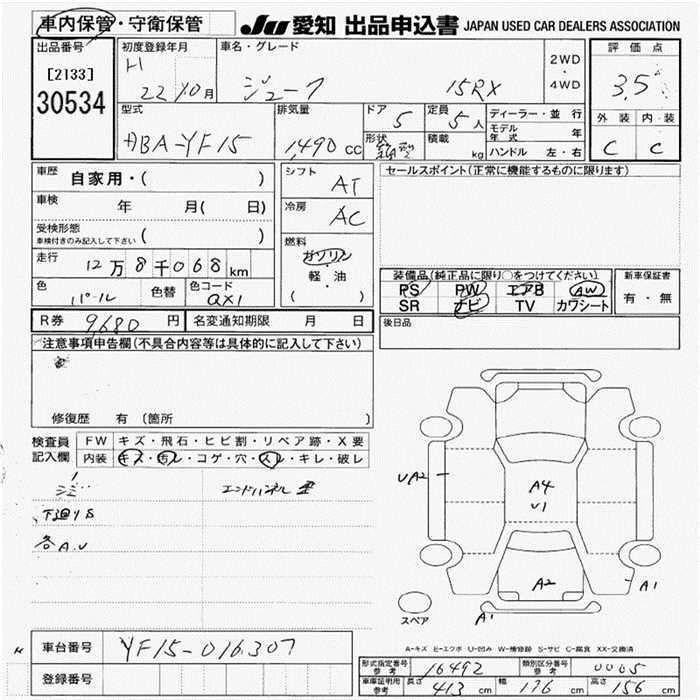 車内保管・守衛保管
JU 愛知 出品申込書 JAPAN USED CAR DEALERS ASSOCIATION
出品番号 初度登録年月 車名・グレード 評価点
[2133]
30534
H
22 年 10 月 ジューク 15RX 2WD・4WD 3.5
型式 排気量 ドア 定員 ディーラー・並行 外装 内装
ABA-YF15 1,490 CC 5 5 人 モデル年式 年 C C
形状 積載 kg ハンドル 左・右
車歴 自家用・( ) シフト AT セールスポイント(正常に機能するものに限ります)
車検 年 月( 日) 冷房 AC
受検形態
車検付きのみ記入して下さい ( )
燃料 ガソリン
軽・油
( )
走行 12 万 8 千 068 km
色 パール 色替 色コード QX1
装備品(純正品に限り○をつけてください) 新車保証書
PS PW エアB AW 有・無
SR ナビ TV カワシート
R券 9,680 円 名変通知期限 月 日 後日品
注意事項申告欄(不具合内容等は具体的に記入して下さい)
修復歴 有 (箇所 )
検査員記入欄 FW キズ・飛石・ヒビ割・リペア跡・X要
内装 キズ・汚レ・コゲ・穴・スレ・キレ・破レ
エンドパネル
下廻りS
各A.U
UA2
A4
U1
A2
A1
A1
スペア
A-キズ E-エクボ U-凹み W-補修跡 S-サビ C-腐食 XX-交換済
車台番号 YF15-016307
登録番号
形式指定番号 参考 16492 類別区分番号 参考 0005
車庫証明用 参考 長さ 413 cm 幅 176 cm 高さ 156 cm